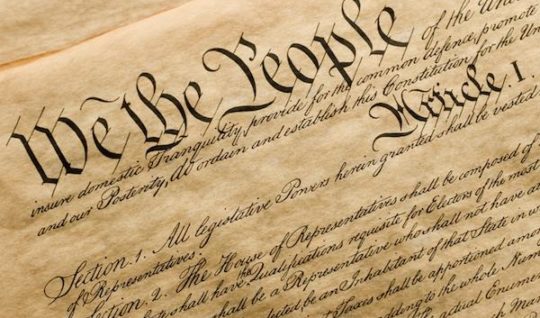 We the People of the Uni
insure domestic Tranquility, provide for the common defence, promote
and our Posterity, do ordain and establish this Constitution for the Uni
Article. I.
Section. 1. All legislative Powers herein granted shall be vested
of Representatives.
Section. 2. The House of Representatives shall be composed of
shall have the Qualifications requisite for Electors of the most
shall be a Representative who shall not have a
ted, be an Inhabitant of that State in w
Taxes shall be apportioned amon
adding to the whole Num
actual Enumer